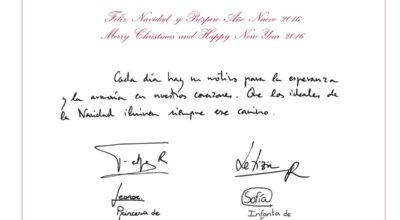 Feliz Navidad y Próspero Año Nuevo 2016
Merry Christmas and Happy New Year 2016
Cada día hay un motivo para la esperanza
y la armonía en nuestros corazones. Que los ideales de
la Navidad iluminen siempre ese camino.
Felipe R Letizia R
Leonor Sofía
Princesa de Infanta de